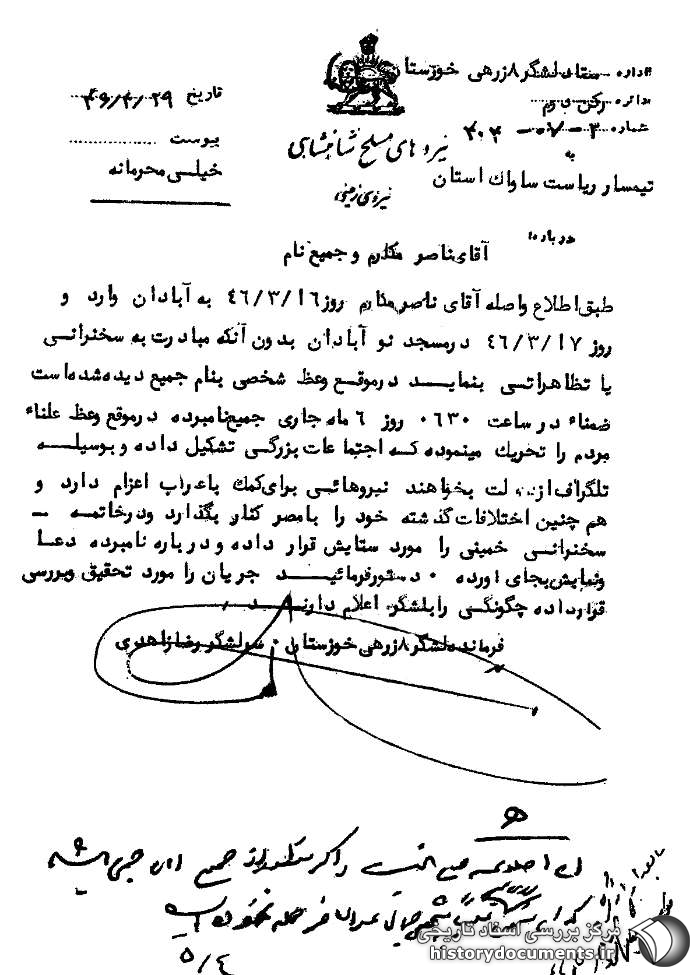 اداره ستاد لشگر ۸ زرهی خوزستان
دائره رکن دوم
شماره
تاریخ ۴۶/۳/۲۹
پیوست
خیلی محرمانه
نیروهای مسلح شاهنشاهی
نیروی زمینی
به
تیمسار ریاست ساواک استان
درباره:
آقای ناصر مکارم و جمیع نام
طبق اطلاع واصله آقای ناصر مکارم روز ۴۶/۳/۱۶ به آبادان وارد و
روز ۴۶/۳/۱۷ درمسجد نو آبادان بدون آنکه مبادرت به سخنرانی
یا تظاهراتی بنماید درموقع وعظ شخصی بنام جمیع دیده شده است
ضمناً در ساعت ۰۶۳۰ روز ۶ ماه جاری جمیع نامبرده درموقع وعظ علناً
مردم را تحریک مینموده که اجتماعات بزرگی تشکیل داده و بوسیله
تلگراف از دولت بخواهند نیروهائی برای کمک باعراب اعزام دارد و
هم چنین اختلافات گذشته خود را بامصر کنار بگذارد ودرخاتمه -
سخنرانی خمینی را مورد ستایش قرار داده و درباره نامبرده دعا
ونیایش بجای اورده ۰ دستور فرمائید جریان را مورد تحقیق وبررسی
قرارداده چگونگی رابلشگر اعلام دارند
فرمانده لشگر ۸ زرهی خوزستان ۰ سرلشگر رضا زاهدی
۵/۴
مرکز بررسی اسناد تاریخی
historydocuments.ir